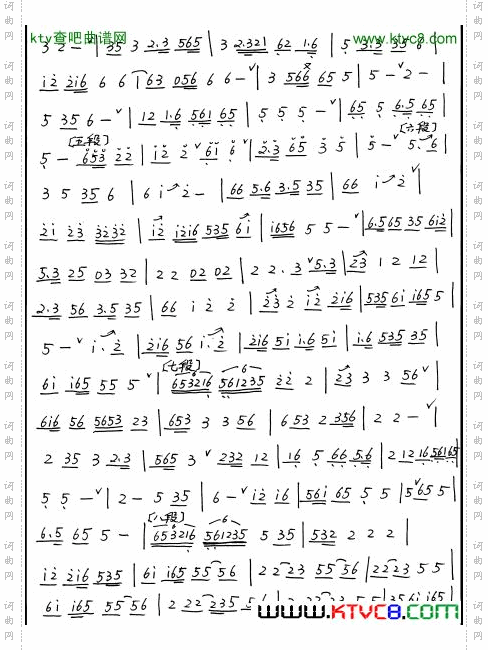 ktv查吧曲谱网 www.ktvc8.com
3 2 - | 35 3 2.3 565 | 3 2.321 62 1.6 | 5 3.5 35 6 |
12 216 6 6 | 63 056 6 6 - ˅ | 3 566 65 5 | 5 - ˅ 2 - |
5 35 6 - ˅ | 12 1.6 561 65 | 5 5 5 - ˅ | 65 5 6.5 65 |
[五段] [六段]
5 - 653 22 | 12 2 ˅ 61 6 ˅ | 2.3 65 3 5 | 5 - ˅ 5. 6 |
3 5 35 6 | 6 1 2 - | 66 5.6 3.5 35 | 66 1 2 ˅ |
21 23 3232 | 12 1216 535 61 | 1656 5 5 - ˅ | 6.565 35 612 |
5.3 25 03 32 | 2 2 02 02 | 2 2. 3 ˅ 5.3 | 23 1 2 12 |
2.3 56 3.5 35 | 66 1 2 2 | 23 2 12 216 | 535 61 165 5 |
5 - ˅ 1. 2 | 216 56 1. 2 | 216 51 1.6 51 | 1.6 535 35 |
[七段]
61 165 55 5 ˅ | 653216 561235 22 2 | 23 3 3 56 ˅ |
616 56 5653 23 | 653 3 3 56 | 6 53 2 356 | 2 2 - ˅ |
2 35 3 2.3 | 565 3 ˅ 232 12 | 16 5 66 5.6 | 2 12 16 56165 |
5 5 - ˅ | 2 - 5 35 | 6 - ˅ 12 16 | 561 65 5 5 | 5 ˅ 65 5 |
[八段]
6.5 65 5 - | 653216 561235 5 35 | 532 2 2 2 |
12 216 535 | 61 165 55 56 | 22 23 55 56 | 22 23 5 5 |
61 165 55 56 | 2 22 235 5
WWW.KTVC8.COM
词曲网